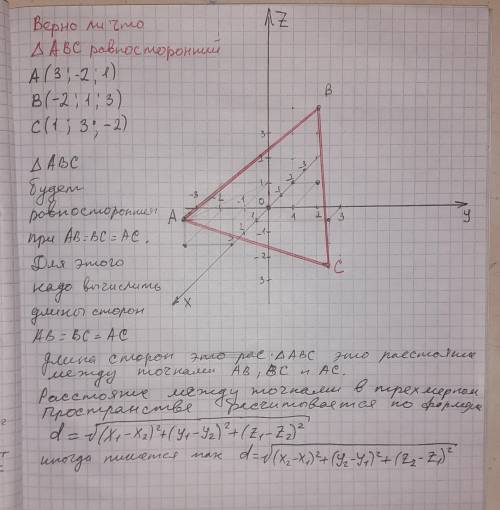 Верно ли что
△ABC равносторонний
A(3; -2; 1)
B(-2; 1; 3)
C(1; 3; -2)
△ABC
будет
равносторонним
при AB=BC=AC.
Для этого
надо вычислить
длины сторон
AB=BC=AC
Z
B
3
2
1
0
-3
-2
-1
-1
-2
-3
A
1
2
3
1
2
3
y
-1
-2
3
C
X
длина сторон это рас △ABC это расстояние
между точками AB, BC и AC.
Расстояние между точками в трехмерном
пространстве расчитывается по формуле
d=√(x₁-x₂)²+(y₁-y₂)²+(z₁-z₂)²
иногда пишется так d=√(x₂-x₁)²+(y₂-y₁)²+(z₂-z₁)²